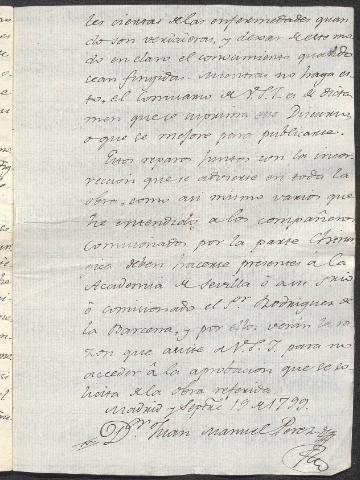 les ciertas de las enfermedades quan
do son verdaderas, y dexar de este mo
do en claro el conocimiento quando
sean fingidas. Mientras no haga es
to, el Comisario de V.S.I. es de dicta
men que se suprima ese Discurso,
o que se mejore para publicarse.
Estos reparos juntos con la incor
rección que se advierte en toda la
obra, como asi mismo varios que
he entendido a los compañeros
Comisionados por la parte Chirur
gica deben hacerse presentes a la
Academia de Sevilla ó a su
ó comisionado el Sor Rodriguez de
la Barcena, y por ellos verán la ra
zon que asiste a V.S.I. para no
acceder á la aprobacion que se so
licita de la obra referida.
Madrid y Septre 19 de 1799.
Dr. Juan Manuel Perez